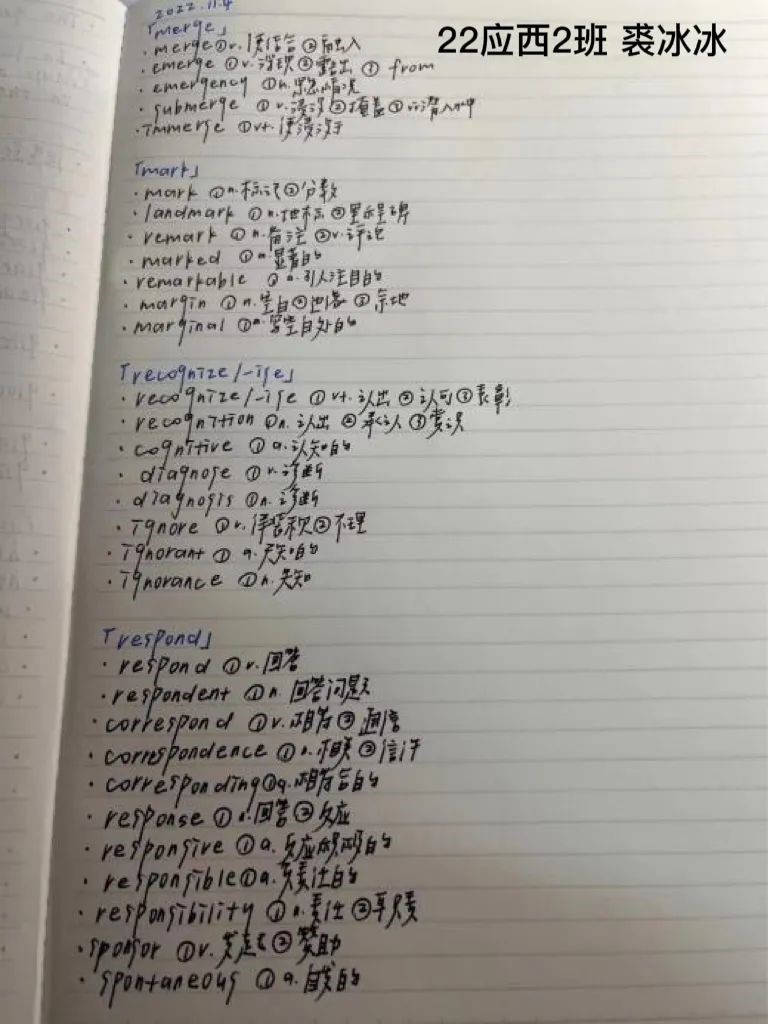 2022.11.4
22应西2班 裘冰冰
「merge」
· merge ①v. 使结合 ②融入
· emerge ①v. 浮现 ②露出 ① from
· emergency ①n. 紧急情况
· submerge ①v. 浸没 ②覆盖 ③vi潜入水中
· immerge ①vt. 使浸没于
「mark」
· mark ①n. 标记 ②分数
· landmark ①n. 地标 ②里程碑
· remark ①n. 备注 ②v. 评论
· marked ①a. 显著的
· remarkable ①a. 引人注目的
· margin ①n. 空白 ②边缘 ③余地
· marginal ①a. 空白处的
「recognize/-ise」
· recognize/-ise ①vt. 认出 ②认可 ③表彰
· recognition ①n. 认出 ②承认 ③赏识
· cognitive ①a. 认知的
· diagnose ①v. 诊断
· diagnosis ①n. 诊断
· ignore ①v. 佯装未见 ②不理
· ignorant ① a. 无知的
· ignorance ①n. 无知
「respond」
· respond ①v. 回答
· respondent ①n. 回答问题
· correspond ①v. 相符 ②通信
· correspondence ①n. 相关 ②信件
· corresponding ①a. 相符合的
· response ①n. 回答 ②反应
· responsive ①a. 反应的
· responsible ①a. 负责任的
· responsibility ①n. 责任 ②职责
· sponsor ①v. 发起 ②赞助
· spontaneous ①a. 自发的